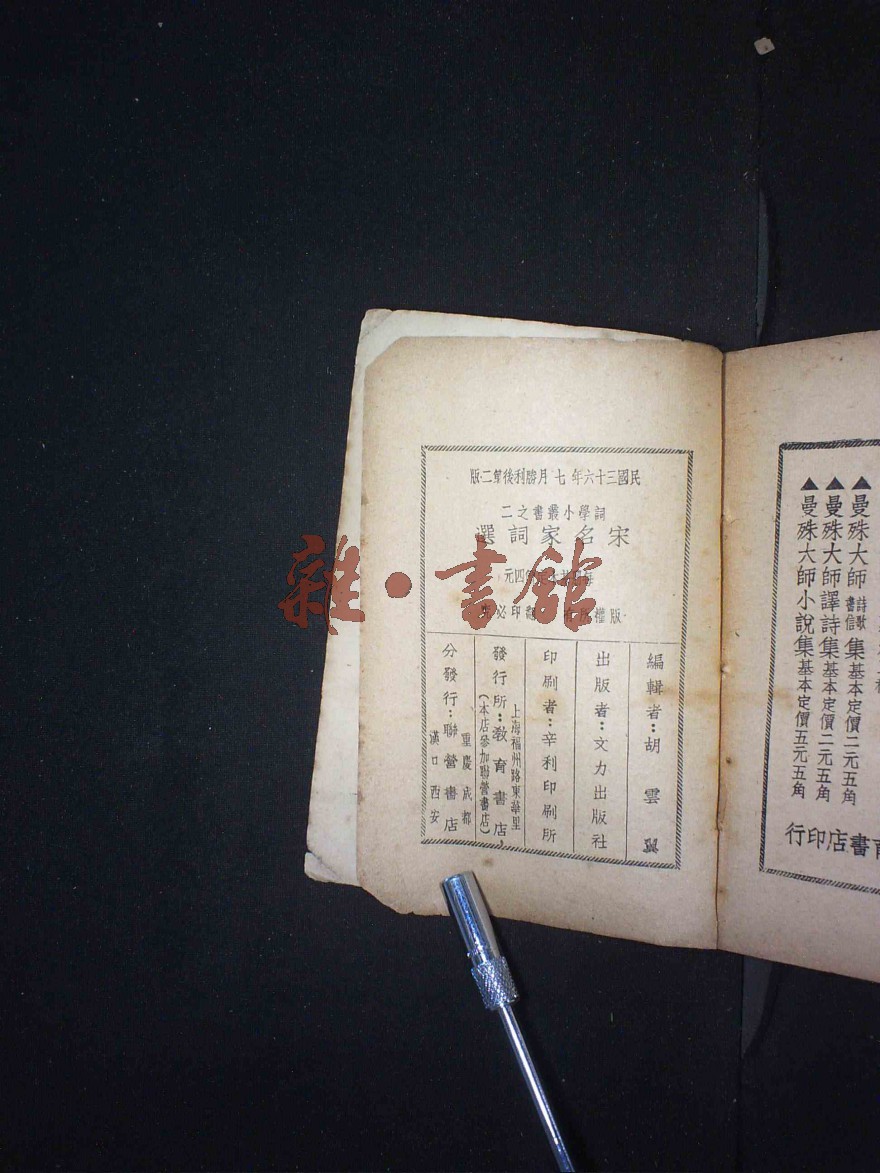 民國三十六年七月勝利後第二版
詞學小叢書之二
宋名家詞選
元四
版權 翻印必
編輯者:胡雲翼
出版者:文力出版社
印刷者:辛利印刷所
上海福州路東華里
發行所:教育書店
(本店參加聯營書店)
重慶 成都
分發行:聯營書店
漢口 西安
▲曼殊大師詩歌書信集基本定價二元五角
▲曼殊大師譯詩集基本定價二元五角
▲曼殊大師小說集基本定價五元五角
育書店印行
雜·書館